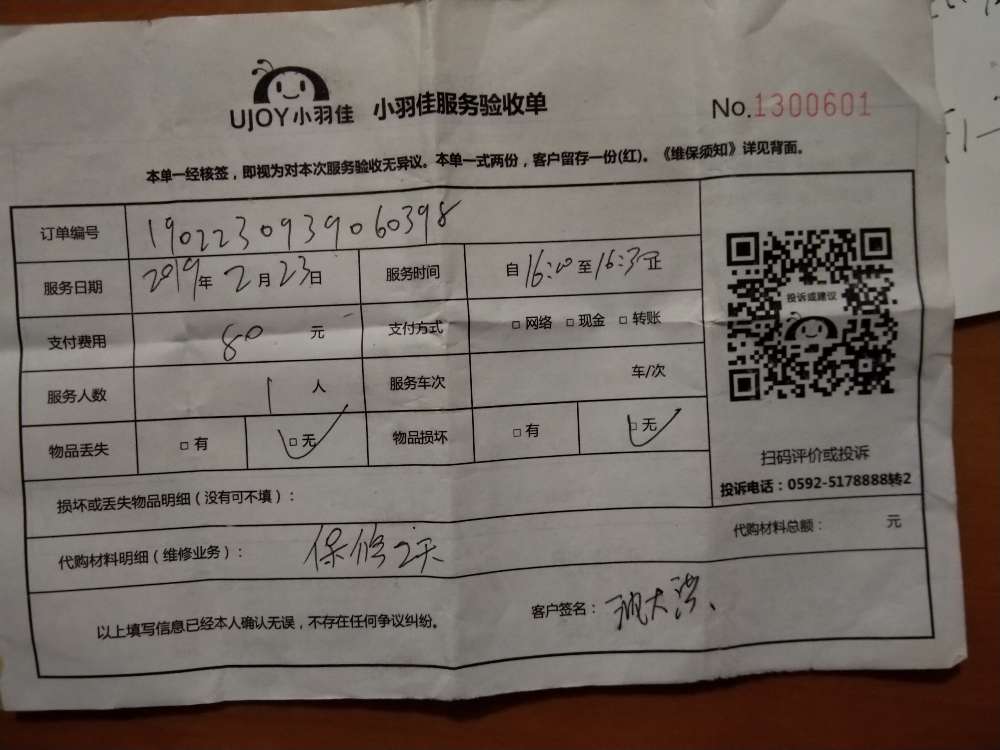 UJOY小羽佳 小羽佳服务验收单 No.1300601
本单一经核签，即视为对本次服务验收无异议。本单一式两份，客户留存一份(红)。《维保须知》详见背面。
订单编号 1902230939060398
服务日期 2019年2月23日 服务时间 自16:00至16:30止
支付费用 80 元 支付方式 □网络 □现金 □转账
服务人数 1 人 服务车次 车/次
物品丢失 □有 □无 物品损坏 □有 □无
投诉或建议
扫码评价或投诉
投诉电话：0592-5178888转2
损坏或丢失物品明细（没有可不填）：
代购材料明细（维修业务）： 保修2天 代购材料总额： 元
以上填写信息已经本人确认无误，不存在任何争议纠纷。 客户签名：